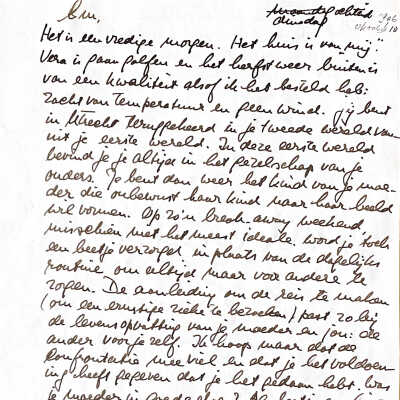 Em,
dinsdag
Het is een vredige morgen. Het huis is van mij:
Vera is gaan golfen en het herfstweer buiten is
van een kwaliteit alsof ik het besteld heb:
zacht van temperatuur en geen wind. Jij bent
in Utrecht teruggekeerd in je tweede wereld van
uit je eerste wereld. In deze eerste wereld
bevind je je altijd in het gezelschap van je
ouders. Je bent dan weer het kind van je moe-
der die onbewust haar kind naar haar beeld
wil vormen. Op zo'n break-away weekend,
misschien niet het meest ideale, word je toch
een beetje verzorgd in plaats van de dagelijkse
routine om altijd maar voor andere te
zorgen. De aanleiding om de reis te maken
(om een ernstige zieke te bezoeken) past zo bij
de levensopvatting van je moeder en jou: de
ander voor jezelf. Ik hoop maar dat de
konfrontatie mee viel en dat je het voldoen-
ing heeft gegeven dat je het gedaan hebt. Was
je moeder in